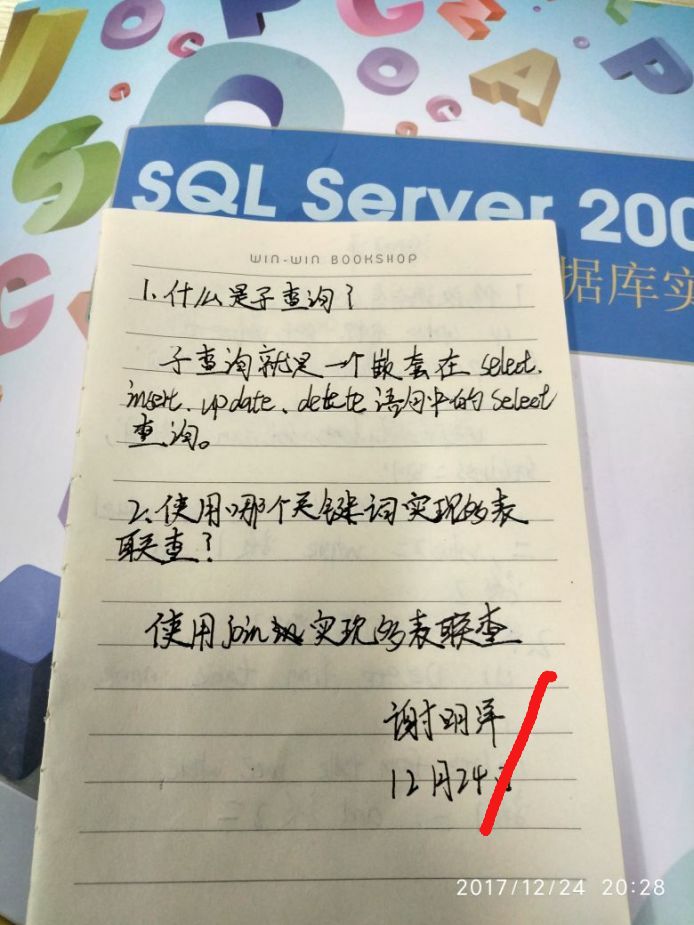 SQL Server 200
据库实
WIN-WIN BOOKSHOP
1.什么是子查询?
子查询就是一个嵌套在select、
insert、update、detete语句中的select
查询。
2.使用哪个关键词实现多表
联查?
使用join 实现多表联查
谢明洋
12月24
2017/12/24 20:28